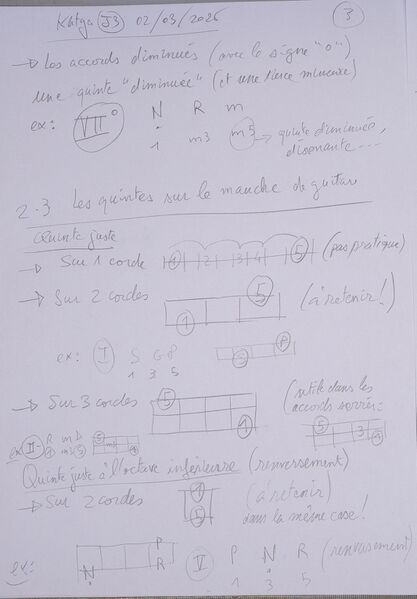 Katga J3 02/03/2026 3
→ Les accords diminués (avec le signe "o")
une quinte "diminuée" (et une tierce mineure)
ex: VII° N R m
1 m3 m5 → quinte diminuée,
disonante ...
2.3 Les quintes sur le manche de guitare
Quinte juste
→ Sur 1 corde 1 2 3 4 5 (pas pratique)
→ Sur 2 cordes 5 1 (à retenir!)
ex: I S G P
1 3 5
→ Sur 3 cordes 5 1 (utile dans les
accords serrés:
ex II- R m D 5 3
1 m3 5
Quinte juste à l'octave inférieure (renversement)
→ Sur 2 cordes 1 5 (à retenir)
dans la même case!
ex: N P R V P N R (renversement)
1 3 5